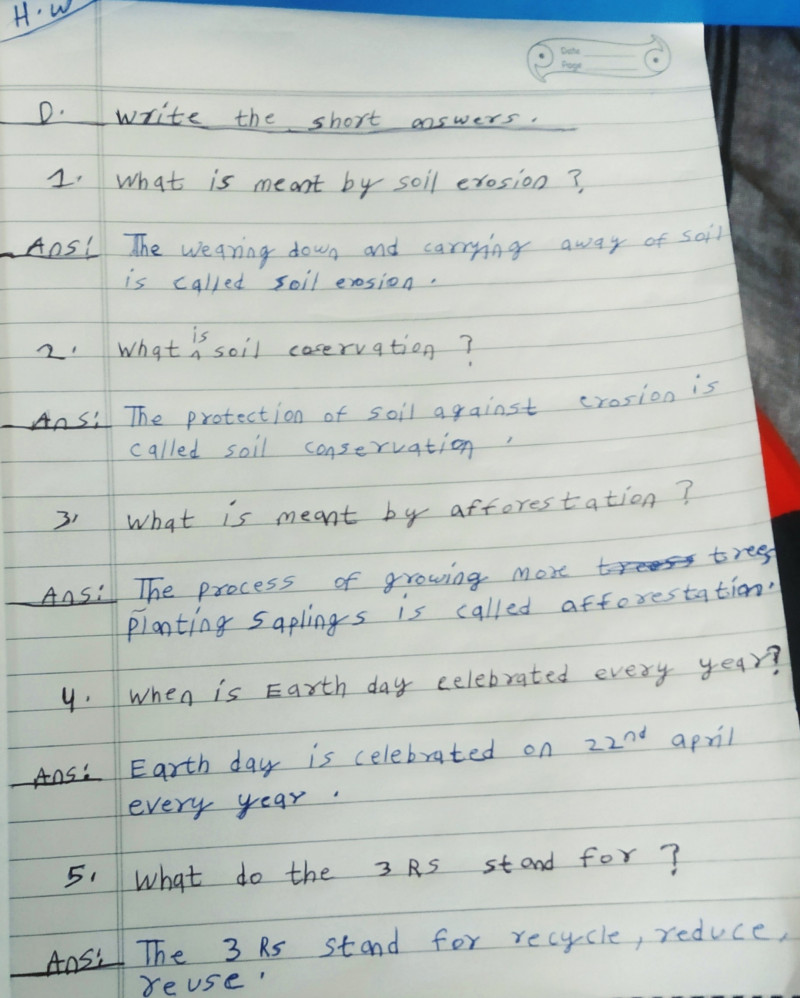 H.W
Date
Page
D. Write the short answers.
1. What is meant by soil erosion?
Ans: The wearing down and carrying away of soil
is called soil erosion.
2. What is soil coservation?
Ans: The protection of soil against erosion is
called soil conservation.
3. What is meant by afforestation?
Ans: The process of growing more trees
planting saplings is called afforestation.
4. When is Earth day celebrated every year?
Ans: Earth day is celebrated on 22nd april
every year.
5. What do the 3 RS stand for?
Ans: The 3 Rs stand for recycle, reduce,
reuse.